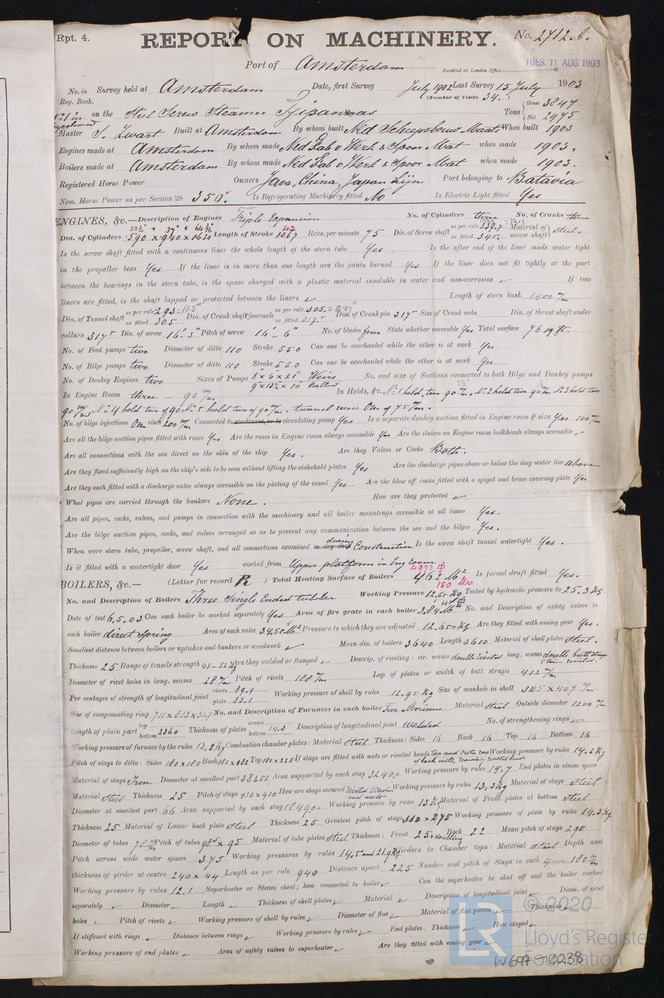 Rpt. 4.
REPORT ON MACHINERY.
No. 2712 b.
Port of Amsterdam
Received at London Office
TUES. 11 AUG 1903
No. in Survey held at Amsterdam Date, first Survey July 1902 Last Survey 15 July 1903
Reg. Book. (Number of Visits 34.)
on the Steel Screw Steamer Tjipanas Tons Gross 3847 Net 2475
Master J. Zwart Built at Amsterdam By whom built Ned Scheepsbouw Maats When built 1903
Engines made at Amsterdam By whom made Ned Fab v Werk & Spoor Mat when made 1903.
Boilers made at Amsterdam By whom made Ned Fab v Werk & Spoor Mat when made 1903.
Registered Horse Power Owners Java, China, Japan Lijn Port belonging to Batavia
Nom. Horse Power as per Section 28 350. Is Refrigerating Machinery fitted No Is Electric Light fitted Yes
ENGINES, &c.—Description of Engines Triple Expansion No. of Cylinders three No. of Cranks three
Dia. of Cylinders 590 x 940 x 1630 Length of Stroke 1067 Revs. per minute 75 Dia. of Screw shaft as per rule 339.7 as fitted 345. Material of screw shaft Steel.
Is the screw shaft fitted with a continuous liner the whole length of the stern tube Yes Is the after end of the liner made water tight
in the propeller boss Yes If the liner is in more than one length are the joints burned Yes If the liner does not fit tightly at the part
between the bearings in the stern tube, is the space charged with a plastic material insoluble in water and non-corrosive ✓ If two
liners are fitted, is the shaft lapped or protected between the liners ✓ Length of stern bush 1400 m/m
Dia. of Tunnel shaft as per rule 293 as fitted 305 Dia. of Crank shaft journals as per rule 305 as fitted 317 Dia. of Crank pin 317 Size of Crank webs Dia. of thrust shaft under
collars 317 Dia. of screw 16'-3" Pitch of screw 16'-6" No. of blades four State whether moveable Yes Total surface 76 sq ft.
No. of Feed pumps two Diameter of ditto 110 Stroke 550 Can one be overhauled while the other is at work Yes
No. of Bilge pumps two Diameter of ditto 110 Stroke 550 Can one be overhauled while the other is at work Yes
No. of Donkey Engines two Sizes of Pumps 8" x 6 x 21" Weirs 9" x 13½" x 10 Ballast No. and size of Suctions connected to both Bilge and Donkey pumps
In Engine Room three - 90 m/m In Holds, &c. No 1 hold two 90 m/m, No 2 hold two 90 m/m No 3 hold two
90 m/m, No 4 hold two of 90 No 5 hold two of 90 m/m. Tunnel recess One of 75 m/m.
No. of bilge injections One sizes 200 m/m Connected to circulating pump Yes Is a separate donkey suction fitted in Engine room & size Yes 100 m/m
Are all the bilge suction pipes fitted with roses Yes Are the roses in Engine room always accessible Yes Are the sluices on Engine room bulkheads always accessible ✓
Are all connections with the sea direct on the skin of the ship Yes. Are they Valves or Cocks Both.
Are they fixed sufficiently high on the ship's side to be seen without lifting the stokehold plates Yes Are the discharge pipes above or below the deep water line above
Are they each fitted with a discharge valve always accessible on the plating of the vessel Yes Are the blow off cocks fitted with a spigot and brass covering plate Yes
What pipes are carried through the bunkers None. How are they protected ✓
Are all pipes, cocks, valves, and pumps in connection with the machinery and all boiler mountings accessible at all times Yes.
Are the bilge suction pipes, cocks, and valves arranged so as to prevent any communication between the sea and the bilges Yes.
When were stern tube, propeller, screw shaft, and all connections examined during Construction Is the screw shaft tunnel watertight Yes.
Is it fitted with a watertight door Yes worked from Upper platform in Eng. room
BOILERS, &c.— (Letter for record R) Total Heating Surface of Boilers 462 M² Is forced draft fitted Yes.
No. and Description of Boilers Three Single Ended tubular Working Pressure 12.65 Kg Tested by hydraulic pressure to 25.3 Kg
Date of test 6.5.03 Can each boiler be worked separately Yes Area of fire grate in each boiler No. and Description of safety valves to
each boiler direct spring Area of each valve Pressure to which they are adjusted 12.65 Kg Are they fitted with easing gear Yes.
Smallest distance between boilers or uptakes and bunkers or woodwork ✓ Mean dia. of boilers 3640 Length 3610 Material of shell plates Steel.
Thickness 25 Range of tensile strength 45-52 Kg Are they welded or flanged ✓ Descrip. of riveting: cir. seams double riveted long. seams double butt straps
Diameter of rivet holes in long. seams 28 m/m Pitch of rivets 188 m/m Lap of plates or width of butt straps 412 m/m
Per centages of strength of longitudinal joint rivets 89.1 plate 85.1 Working pressure of shell by rules 12.95 Kg Size of manhole in shell 325 x 407 m/m
Size of compensating ring No. and Description of Furnaces in each boiler Two Morison Material Steel Outside diameter 1200 m/m
Length of plain part bottom 2360 Thickness of plates 14.3 Description of longitudinal joint Welded No. of strengthening rings
Working pressure of furnace by the rules 13.2 Kg Combustion chamber plates: Material Steel Thickness: Sides 16 Back 16 Top 16 Bottom 16
Pitch of stays to ditto: Sides 180 x 180 Back 180 x 182 Top If stays are fitted with nuts or riveted heads Working pressure by rules 14.2 Kg
Material of stays Iron Diameter at smallest part Area supported by each stay Working pressure by rules 14.7 End plates in steam space
Material Steel Thickness 25 Pitch of stays 430 x 430 How are stays secured Working pressure by rules 13.3 Kg Material of stays Steel
Diameter at smallest part 66 Area supported by each stay Working pressure by rules 13 Kg Material of Front plates at bottom Steel
Thickness 25 Material of Lower back plate Steel Thickness 25 Greatest pitch of stays Working pressure of plate by rules 14.3 Kg
Diameter of tubes 70 m/m Pitch of tubes Material of tube plates Steel Thickness: Front 25 Back 22 Mean pitch of stays 290
Pitch across wide water spaces 375 Working pressures by rules Girders to Chamber tops: Material Steel Depth and
thickness of girder at centre 240 x 44 Length as per rule 940 Distance apart 225 Number and pitch of Stays in each
Working pressure by rules 12.1 Superheater or Steam chest; how connected to boiler ✓ Can the superheater be shut off and the boiler worked
separately ✓ Diameter ✓ Length ✓ Thickness of shell plates ✓ Material ✓ Description of longitudinal joint ✓ Diam. of rivet
holes ✓ Pitch of rivets ✓ Working pressure of shell by rules ✓ Diameter of flue ✓ Material of flue plates ✓ Thickness
If stiffened with rings ✓ Distance between rings ✓ Working pressure by rules ✓ End plates: Thickness ✓ How stayed ✓
Working pressure of end plates ✓ Area of safety valves to superheater ✓ Are they fitted with easing gear ✓
© 2020
LR
Lloyd's Register
Foundation
W697-0238